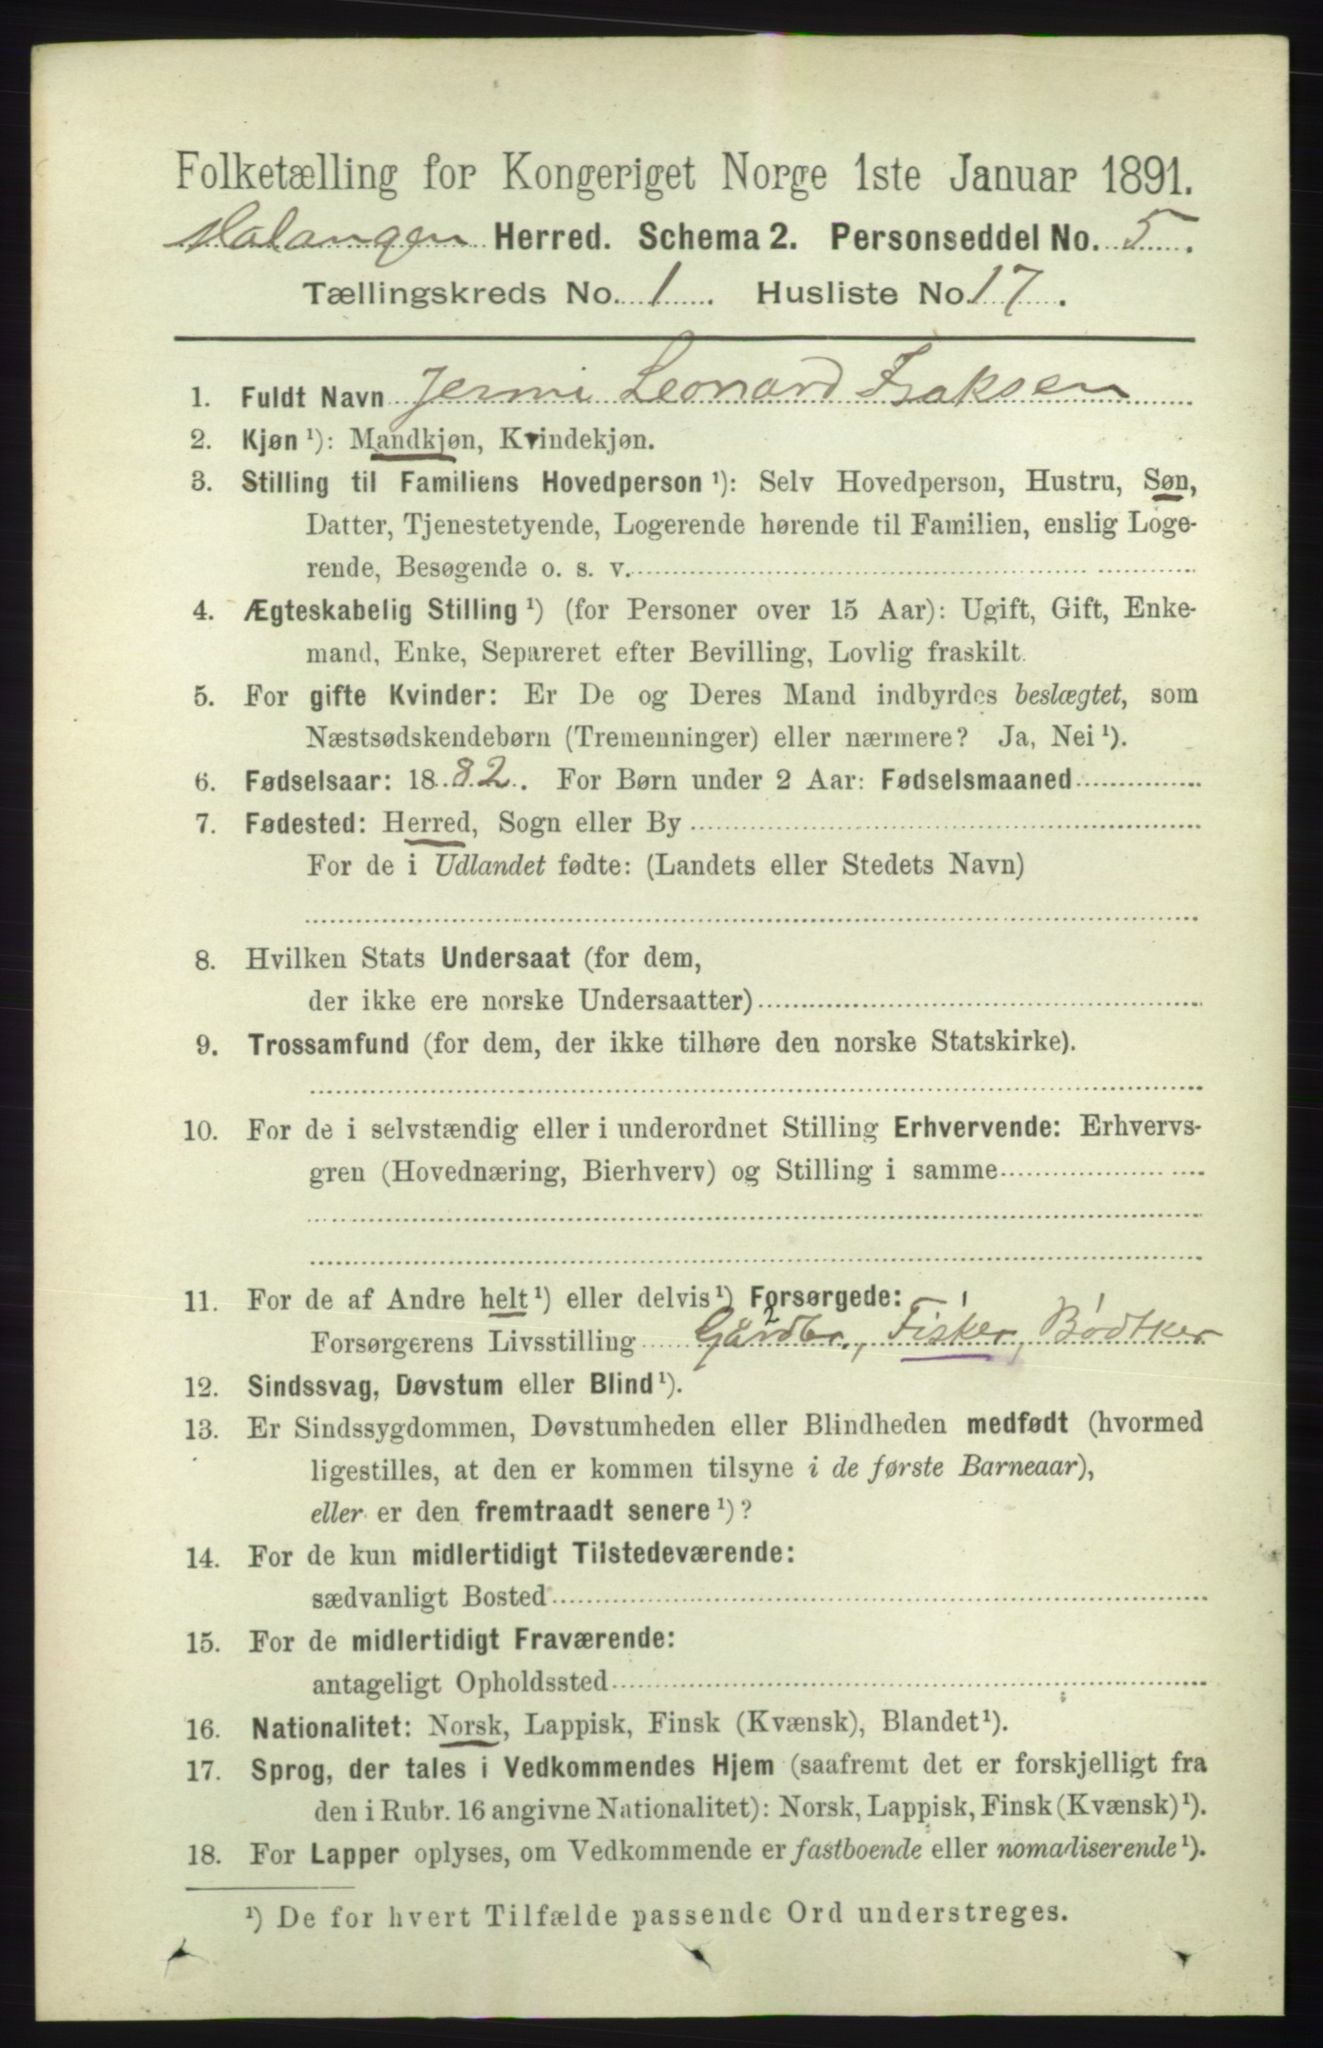 Folketælling for Kongeriget Norge 1ste Januar 1891.
Malangen Herred. Schema 2. Personseddel No. 5.
Tællingskreds No. 1. Husliste No. 17.
1. Fuldt Navn Jermi Leonard Isaksen
2. Kjøn ¹): Mandkjøn, Kvindekjøn.
3. Stilling til Familiens Hovedperson ¹): Selv Hovedperson, Hustru, Søn,
Datter, Tjenestetyende, Logerende hørende til Familien, enslig Loge-
rende, Besøgende o. s. v.
4. Ægteskabelig Stilling ¹) (for Personer over 15 Aar): Ugift, Gift, Enke-
mand, Enke, Separeret efter Bevilling, Lovlig fraskilt.
5. For gifte Kvinder: Er De og Deres Mand indbyrdes beslægtet, som
Næstsødskendebørn (Tremenninger) eller nærmere? Ja, Nei ¹).
6. Fødselsaar: 1882. For Børn under 2 Aar: Fødselsmaaned
7. Fødested: Herred, Sogn eller By
For de i Udlandet fødte: (Landets eller Stedets Navn)
8. Hvilken Stats Undersaat (for dem,
der ikke ere norske Undersaatter)
9. Trossamfund (for dem, der ikke tilhøre den norske Statskirke).
10. For de i selvstændig eller i underordnet Stilling Erhvervende: Erhvervs-
gren (Hovednæring, Bierhverv) og Stilling i samme
11. For de af Andre helt ¹) eller delvis ¹) Forsørgede:
2 1
Forsørgerens Livsstilling Gårdbr., Fisker, Bødtker
12. Sindssvag, Døvstum eller Blind ¹).
13. Er Sindssygdommen, Døvstumheden eller Blindheden medfødt (hvormed
ligestilles, at den er kommen tilsyne i de første Barneaar),
eller er den fremtraadt senere ¹)?
14. For de kun midlertidigt Tilstedeværende:
sædvanligt Bosted
15. For de midlertidigt Fraværende:
antageligt Opholdssted
16. Nationalitet: Norsk, Lappisk, Finsk (Kvænsk), Blandet ¹).
17. Sprog, der tales i Vedkommendes Hjem (saafremt det er forskjelligt fra
den i Rubr. 16 angivne Nationalitet): Norsk, Lappisk, Finsk (Kvænsk) ¹).
18. For Lapper oplyses, om Vedkommende er fastboende eller nomadiserende ¹).
¹) De for hvert Tilfælde passende Ord understreges.